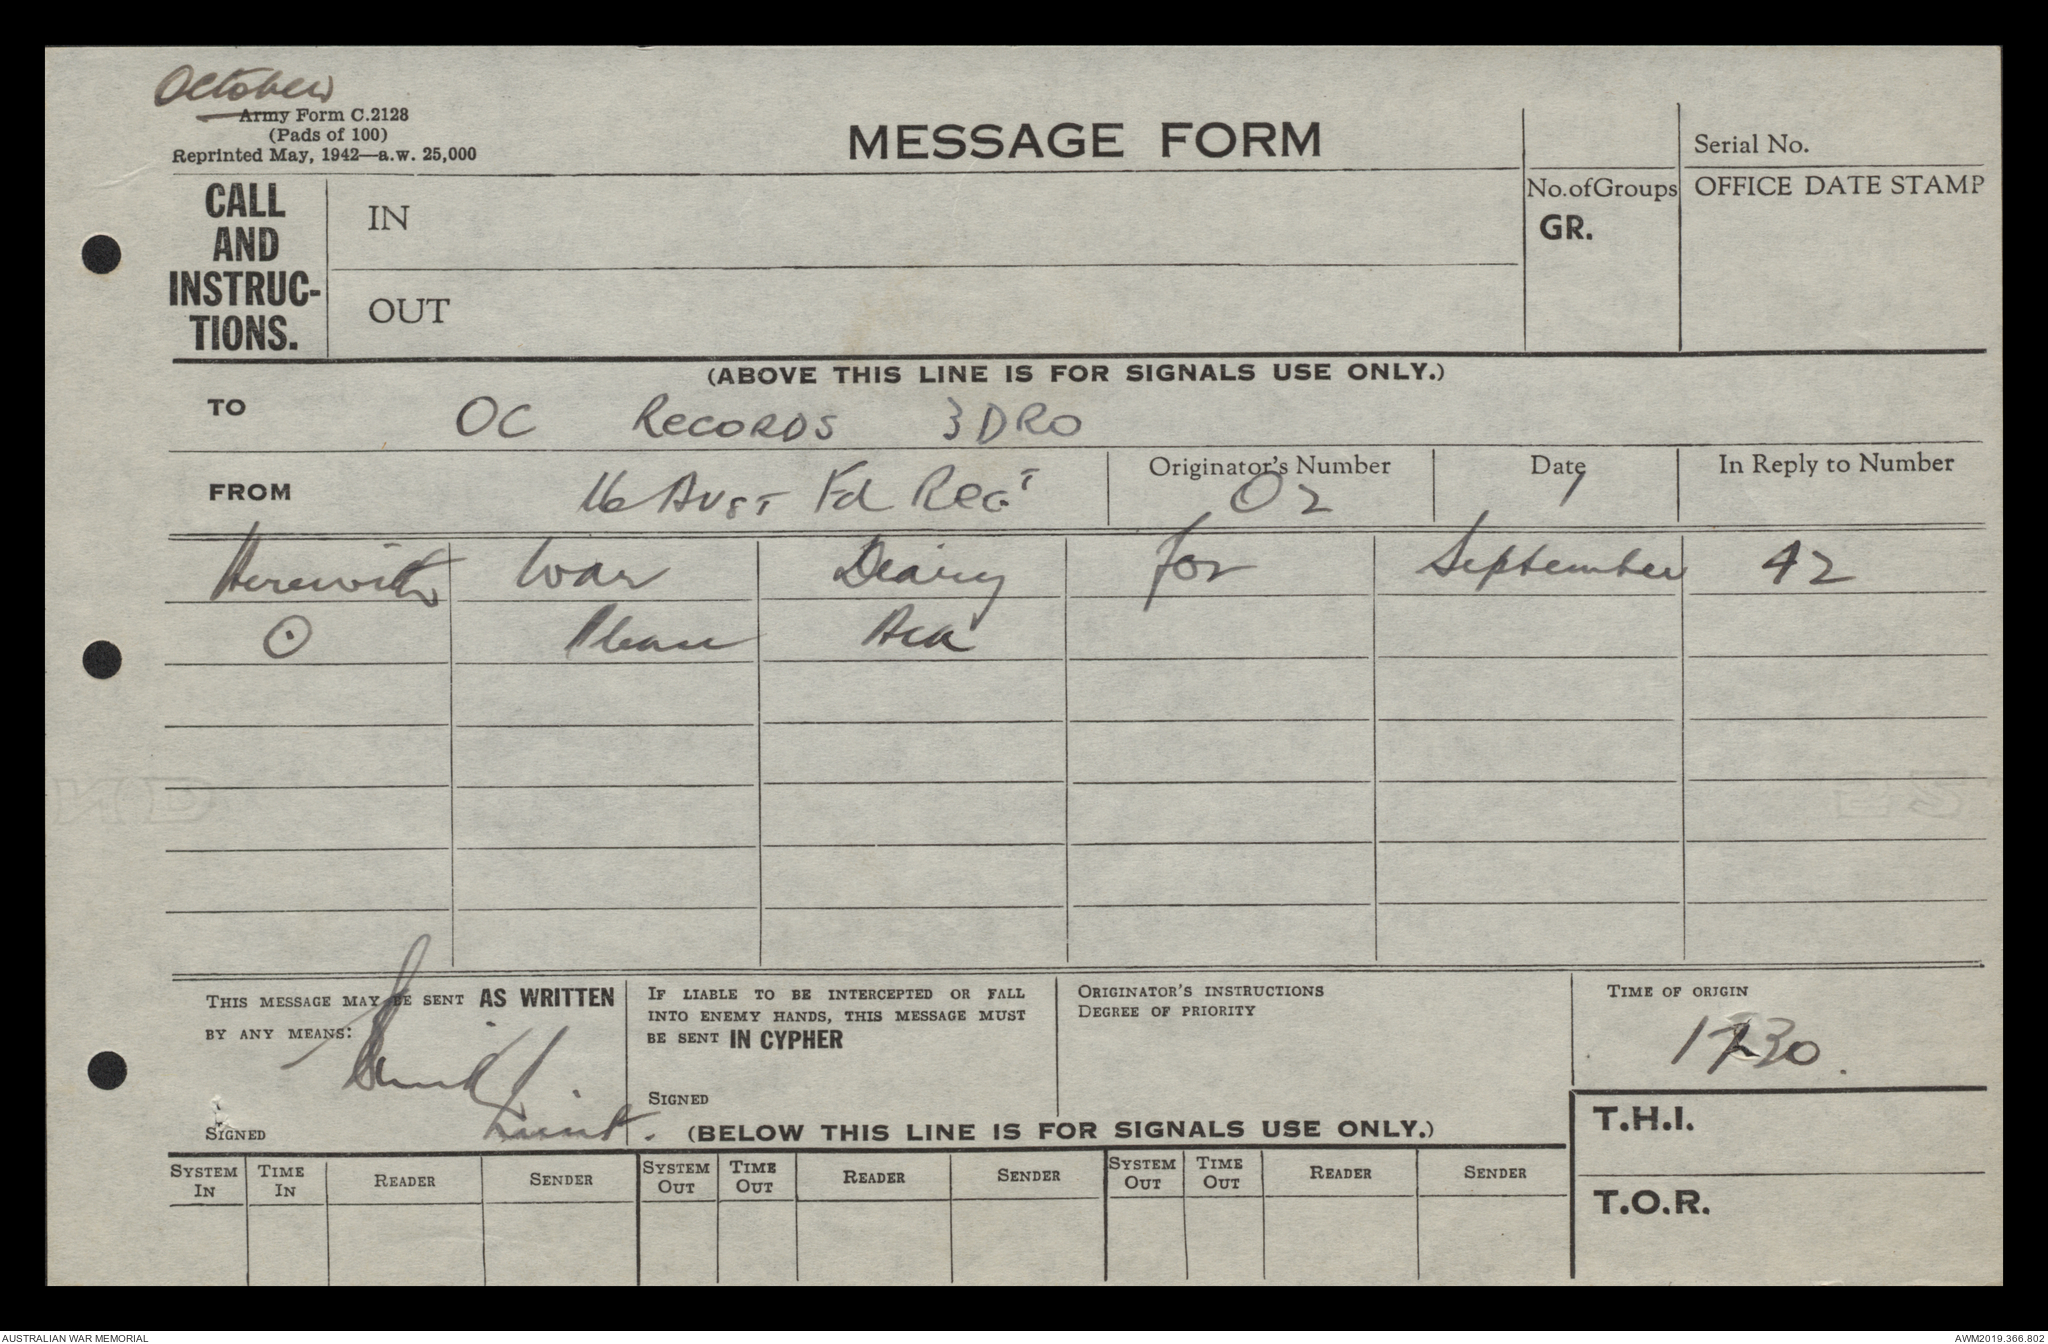 October
Army Form C.2128
(Pads of 100)
Reprinted May, 1942—a.w. 25,000
MESSAGE FORM
Serial No.
CALL
AND
INSTRUC-
TIONS.
IN
OUT
No. of Groups
GR.
OFFICE DATE STAMP
(ABOVE THIS LINE IS FOR SIGNALS USE ONLY.)
TO OC Records 3 DRO
FROM 16 Aust Fd Regt
Originator's Number O2
Date 7
In Reply to Number
Herewith War Diary for September 42
⊙ Please Ack
THIS MESSAGE MAY BE SENT AS WRITTEN
BY ANY MEANS:
SIGNED
Lieut.
IF LIABLE TO BE INTERCEPTED OR FALL
INTO ENEMY HANDS, THIS MESSAGE MUST
BE SENT IN CYPHER
SIGNED
ORIGINATOR'S INSTRUCTIONS
DEGREE OF PRIORITY
TIME OF ORIGIN
1730.
(BELOW THIS LINE IS FOR SIGNALS USE ONLY.)
T.H.I.
T.O.R.
SYSTEM IN TIME IN READER SENDER SYSTEM OUT TIME OUT READER SENDER SYSTEM OUT TIME OUT READER SENDER
AUSTRALIAN WAR MEMORIAL
AWM2019.366.802